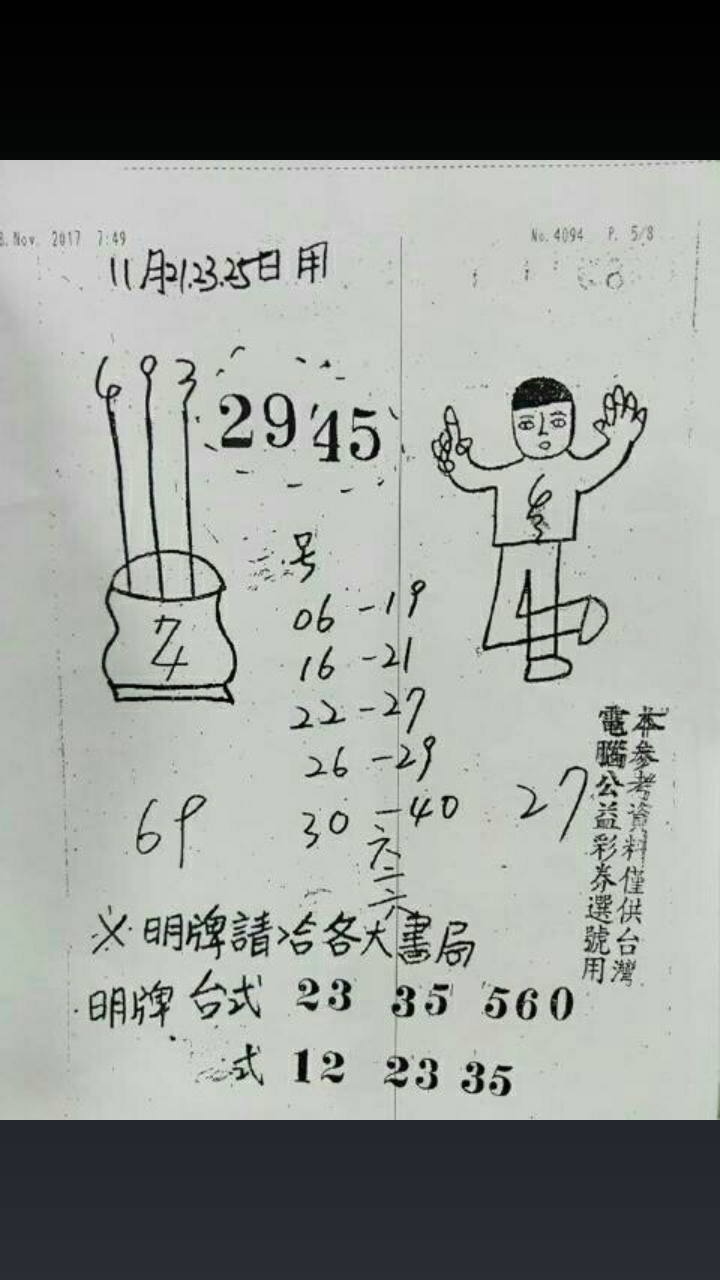 8.Nov. 2017 7:49
No.4094 P. 5/8
11月21.23.25日用
6 9 3
29 45
号
06 - 19
16 - 21
22 - 27
26 - 29
30 - 40
69
27
六二六
本參考資料僅供台灣
電腦公益彩券選號用
※明牌請洽各大書局
明牌 台式 23 35 560
式 12 23 35